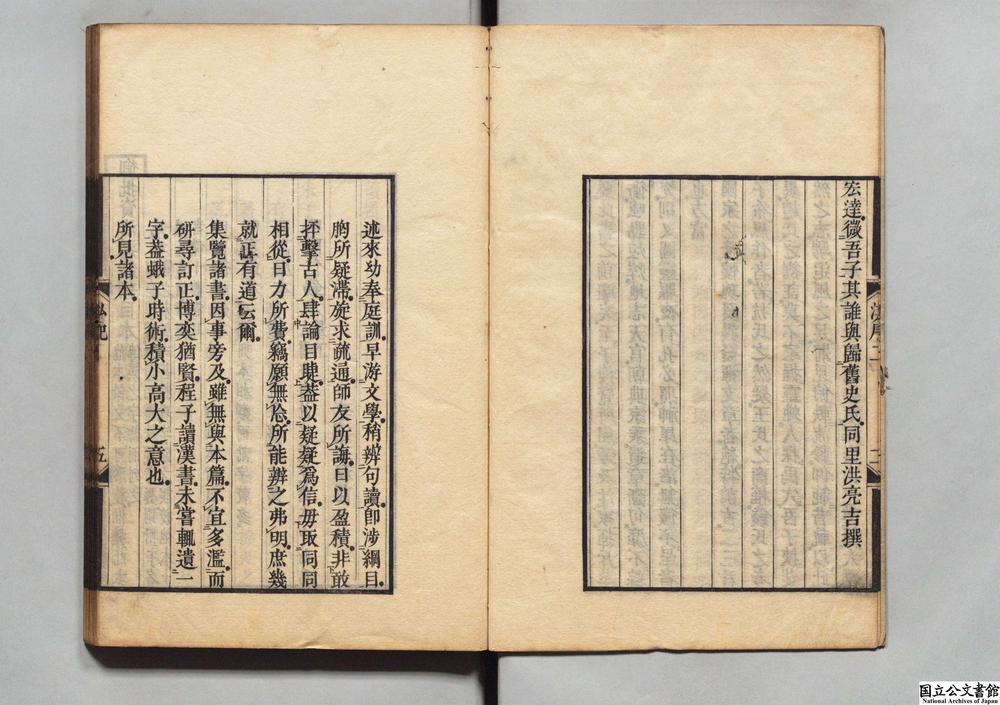 宏達微吾子其誰與歸舊史氏同里洪亮吉撰
述來幼奉庭訓早游文學稍辨句讀卽涉綱目
胸所疑滯旋求疏通師友所誨日以盈積非敢
抨擊古人肆論目睫葢以疑疑爲信毋取同同
相從日力所費竊願無忝所能辨之弗明庶幾
就正有道云爾
集覽諸書因事旁及雖無與本篇不宜多濫而
硏尋訂正博奕猶賢程子讀漢書未嘗輒遺一
字葢蛾子時術積小高大之意也
所見諸本
五
国立公文書館
National Archives of Japan